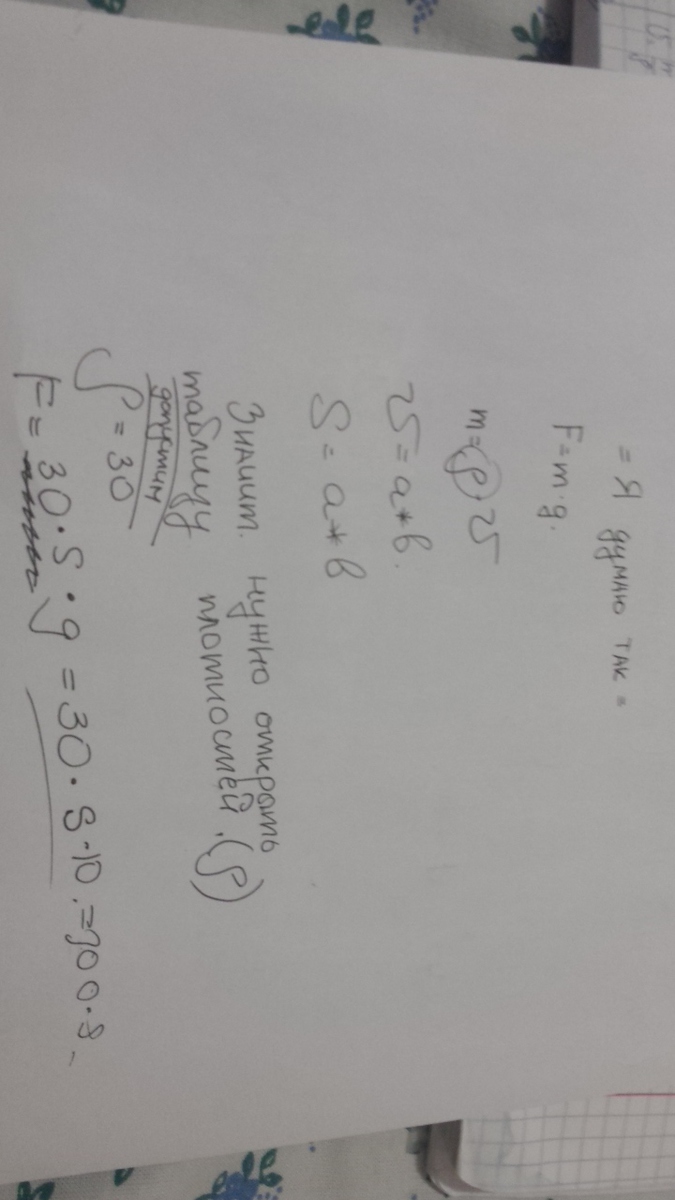 = Я думаю так =
F = m · g.
m = (ρ) V
V = a * b.
S = a * b
Значит. нужно открыть
таблицу плотностей. (ρ)
допустим
ρ = 30
F = 30 · S · g = 30 · S · 10 = 300 · S